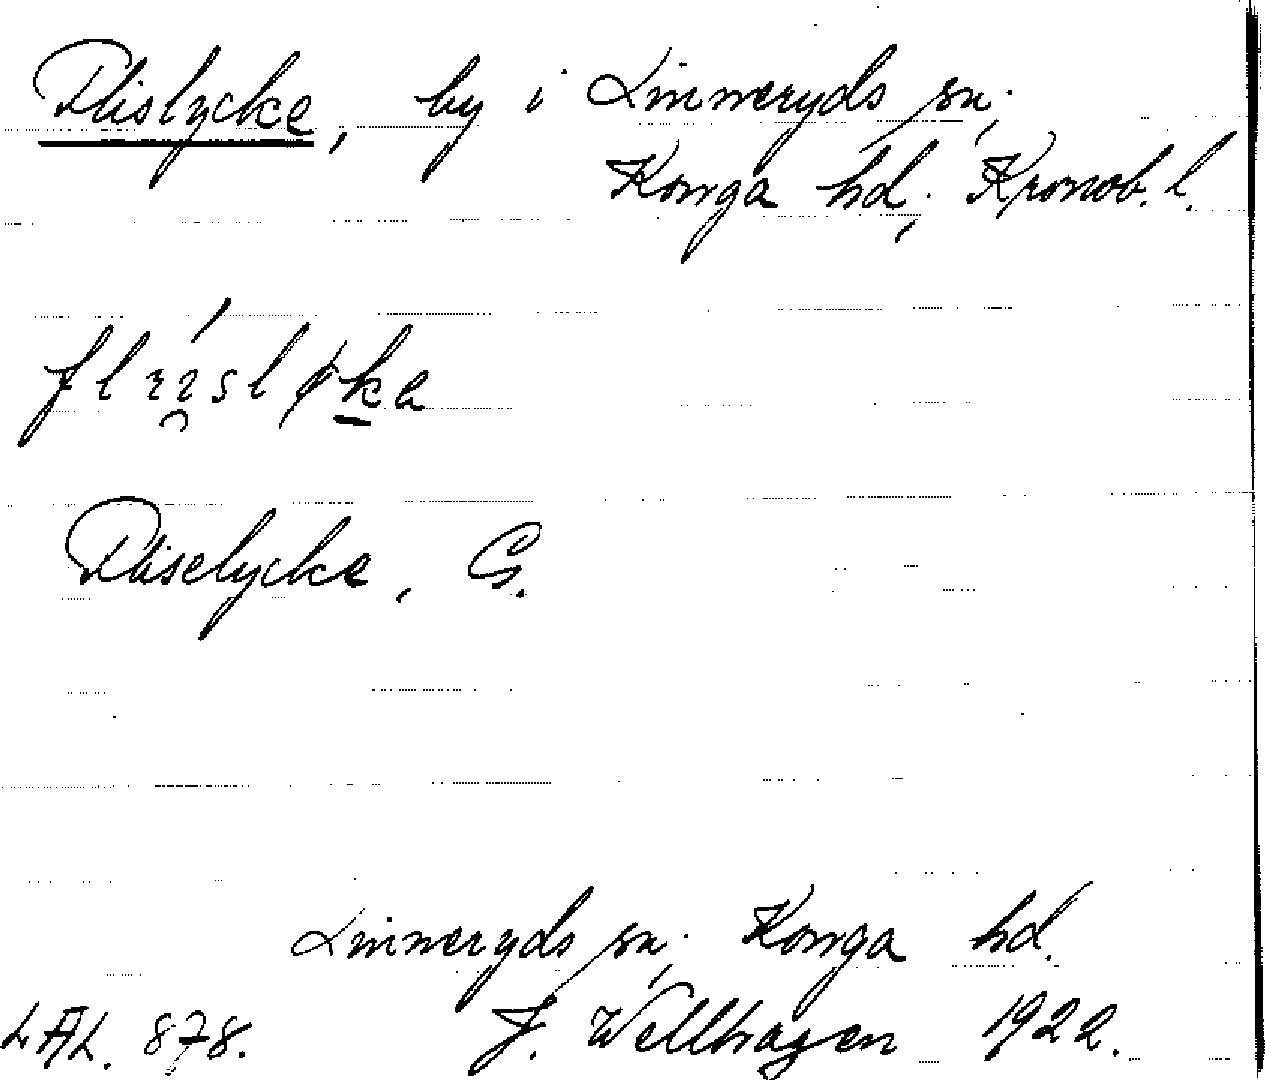 Flislycke, by i Linneryds sn;
Konga hd; Kronob. l.
Fliselycke, G.
Linneryds sn; Konga hd.
LAL. 878. J. Wellhagen 1922.